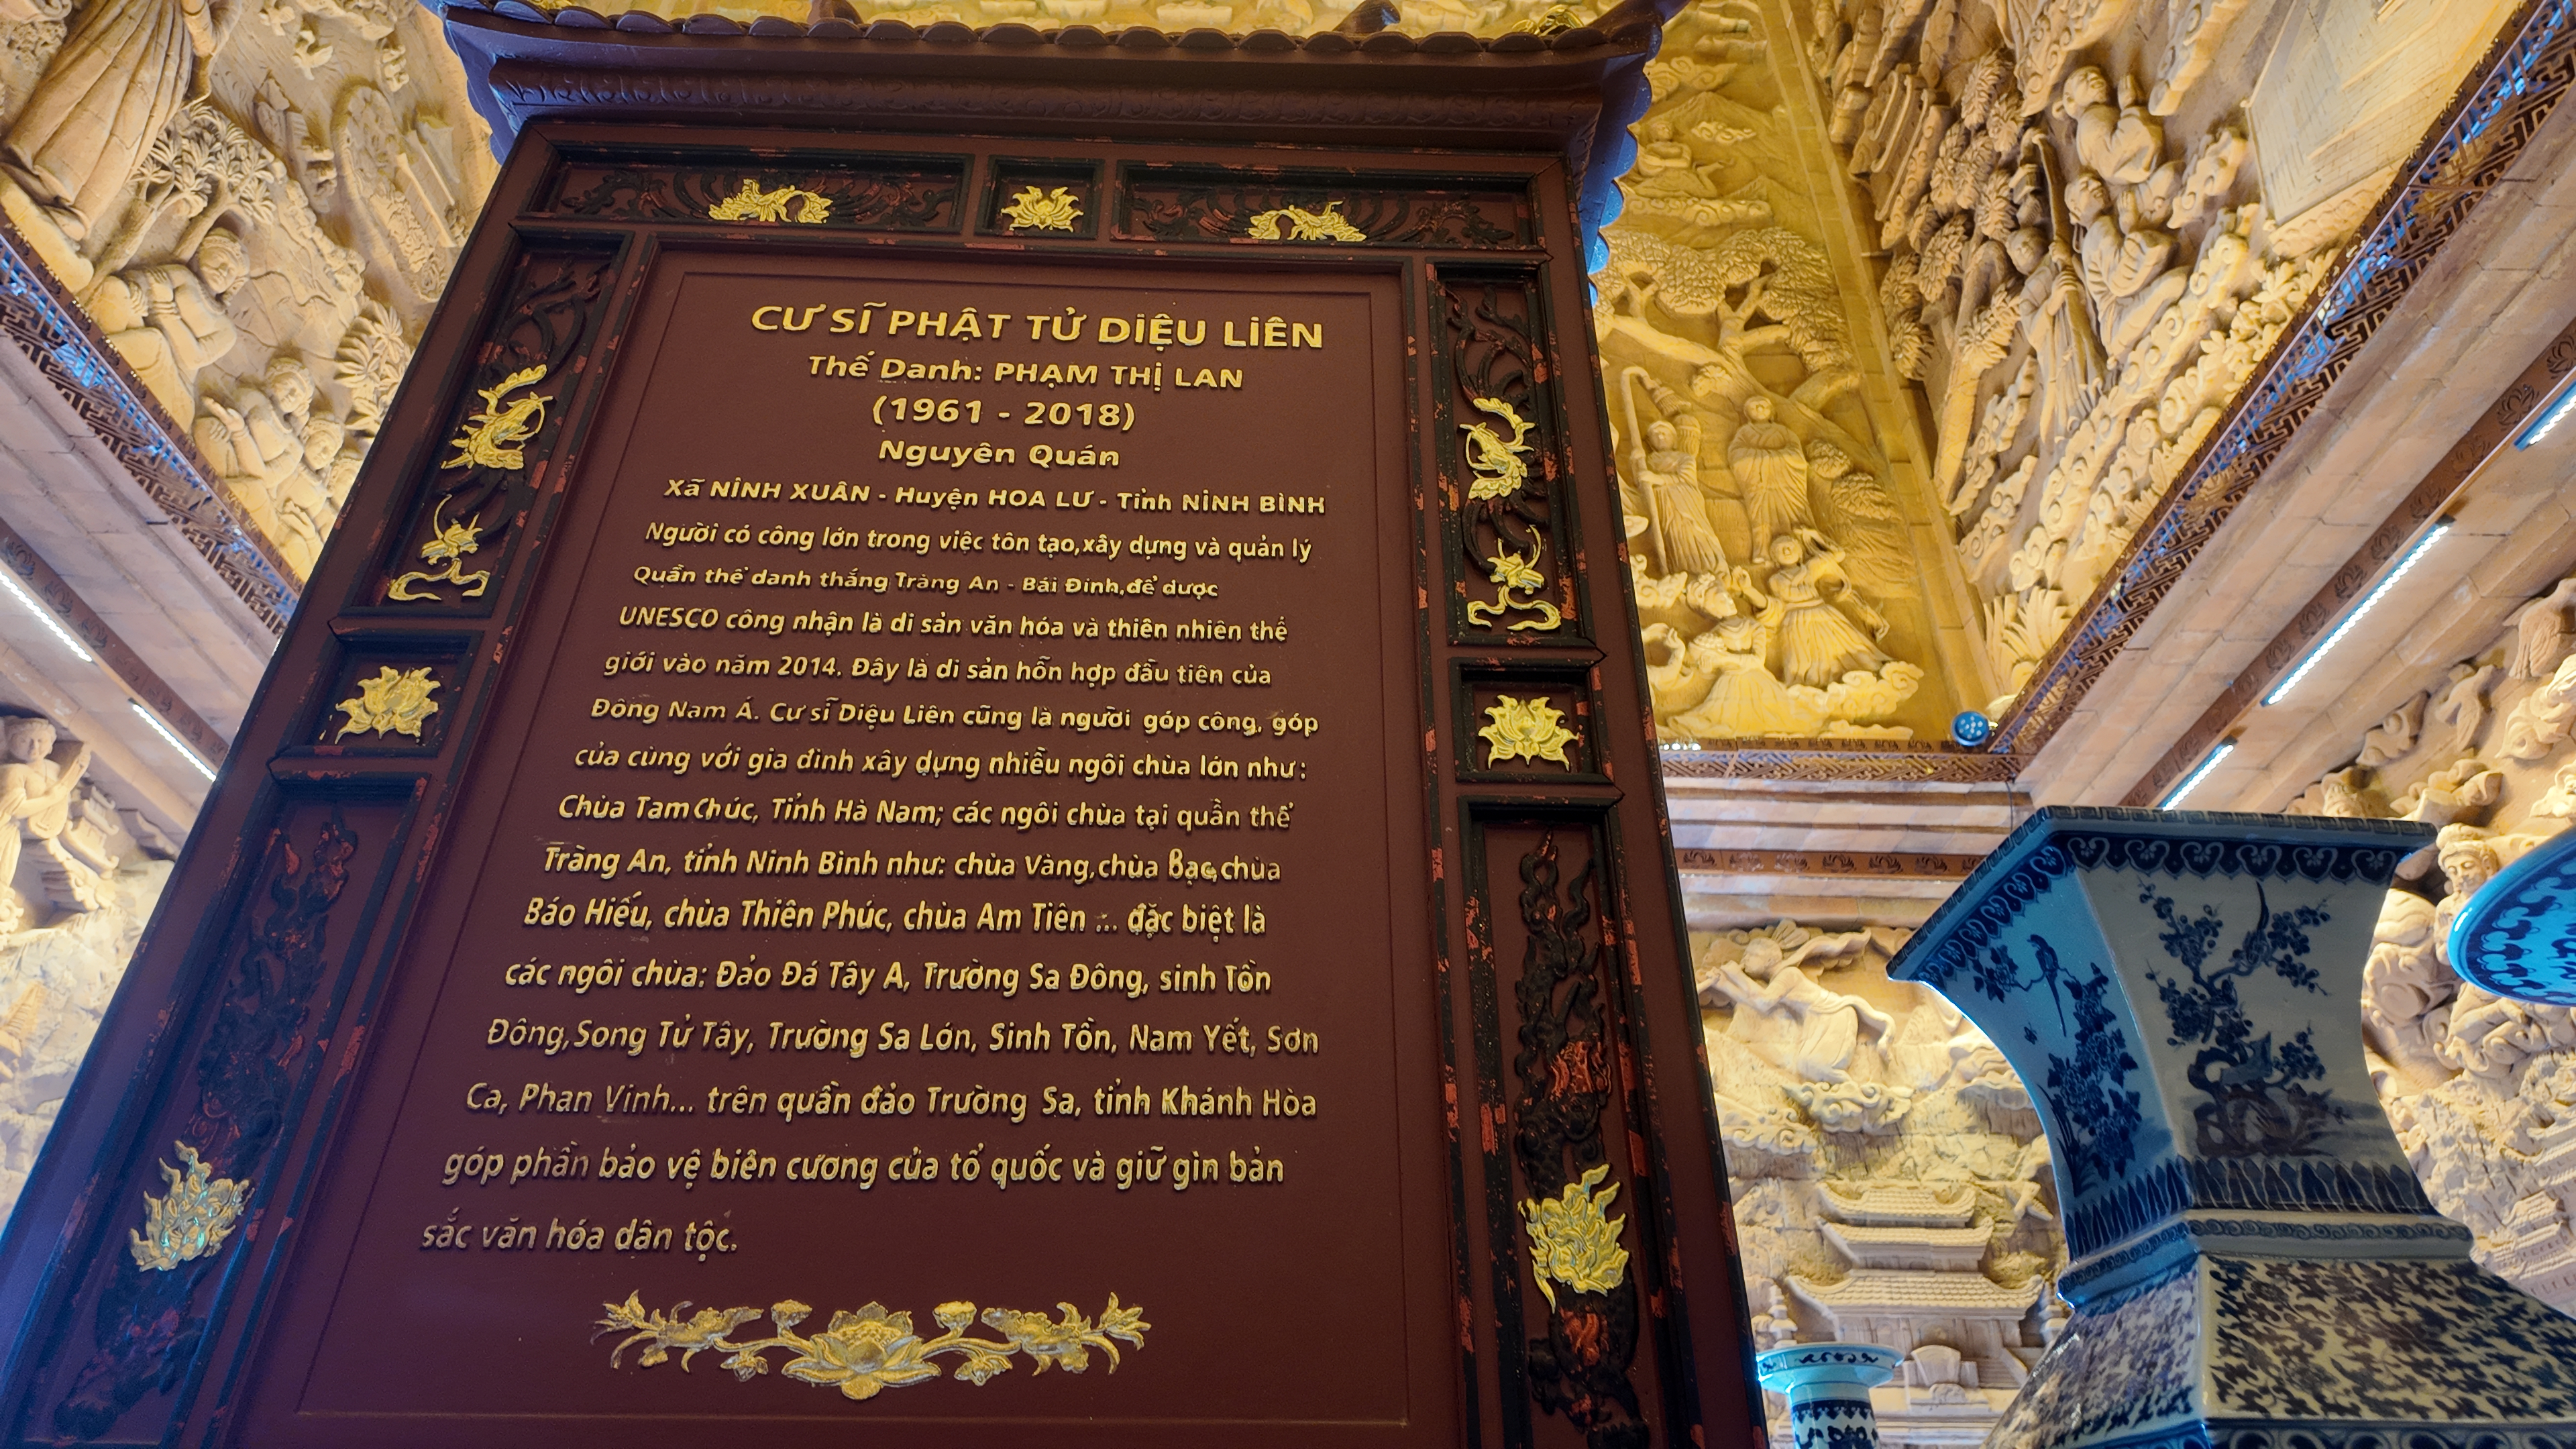 CƯ SĨ PHẬT TỬ DIỆU LIÊN
Thế Danh: PHẠM THỊ LAN
(1961 - 2018)
Nguyên Quán
Xã NINH XUÂN - Huyện HOA LƯ - Tỉnh NINH BÌNH
Người có công lớn trong việc tôn tạo,xây dựng và quản lý
Quần thể danh thắng Tràng An - Bái Đính,để được
UNESCO công nhận là di sản văn hóa và thiên nhiên thế
giới vào năm 2014. Đây là di sản hỗn hợp đầu tiên của
Đông Nam Á. Cư sĩ Diệu Liên cũng là người góp công, góp
của cùng với gia đình xây dựng nhiều ngôi chùa lớn như:
Chùa Tam Chúc, Tỉnh Hà Nam; các ngôi chùa tại quần thể
Tràng An, tỉnh Ninh Bình như: chùa Vàng,chùa Bạc,chùa
Báo Hiếu, chùa Thiên Phúc, chùa Am Tiên ... đặc biệt là
các ngôi chùa: Đảo Đá Tây A, Trường Sa Đông, sinh Tồn
Đông,Song Tử Tây, Trường Sa Lớn, Sinh Tồn, Nam Yết, Sơn
Ca, Phan Vinh... trên quần đảo Trường Sa, tỉnh Khánh Hòa
góp phần bảo vệ biên cương của tổ quốc và giữ gìn bản
sắc văn hóa dân tộc.